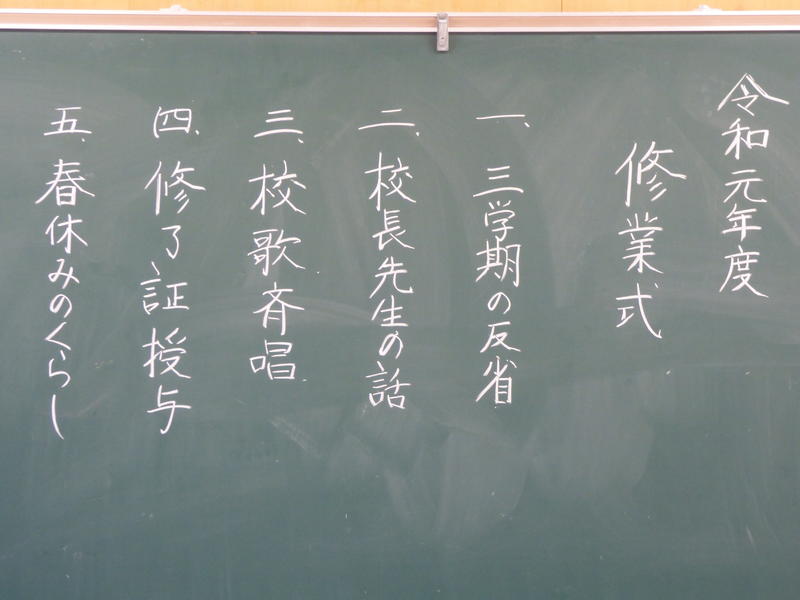 令和元年度
修業式
一、三学期の反省
二、校長先生の話
三、校歌斉唱
四、修了証授与
五、春休みのくらし